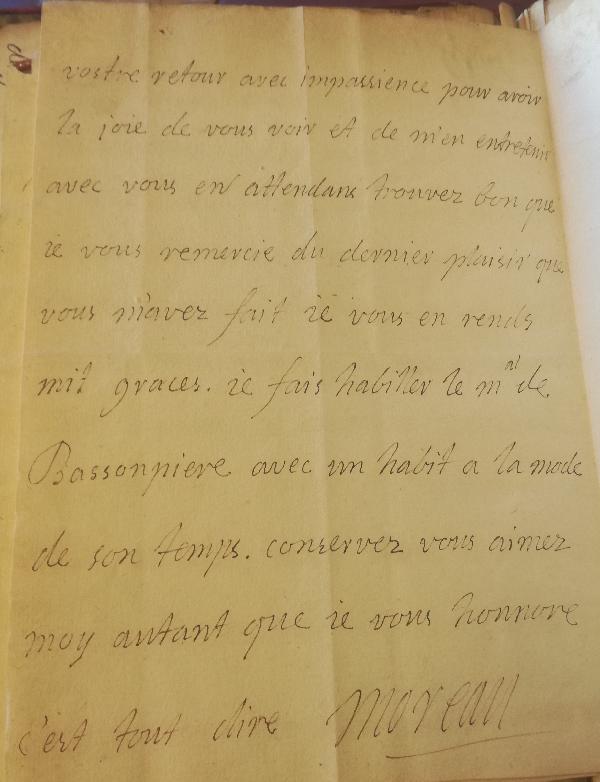 vostre retour avec impassience pour avoir
la joie de vous voir et de m'en entretenir
avec vous en attendans trouvez bon que
ie vous remercie du dernier plaisir que
vous mavez fait ie vous en rends
mil graces. ie fais habiller le m^al de
Bassonpiere avec un habit a la mode
de son temps. conservez vous aimez
moy autant que ie vous honnore
c'est tout dire Moreau